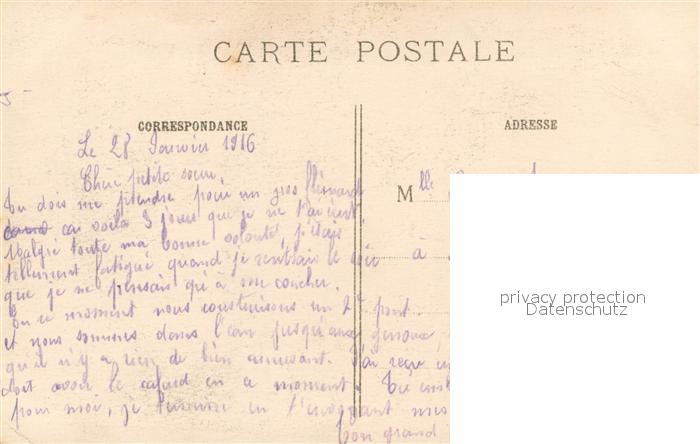 CARTE POSTALE
CORRESPONDANCE
ADRESSE
Le 28 Janvier 1916
Chère petite soeur,
Tu dois me prendre pour un gros flémard
car voilà 3 jours que je ne t'ai écrit.
Malgré toute ma bonne volonté, j'étais
tellement fatigué quand je rentrais le soir
que je ne pensais qu'à me coucher.
En ce moment nous construisons un 2e pont
et nous sommes dans l'eau jusqu'aux genoux,
qu'il n'y a rien de bien amusant. J'ai reçu
doit avoir le cafard en ce moment.
pour moi, je termine en t'envoyant mes
Ton grand
Mlle
à
privacy protection
Datenschutz